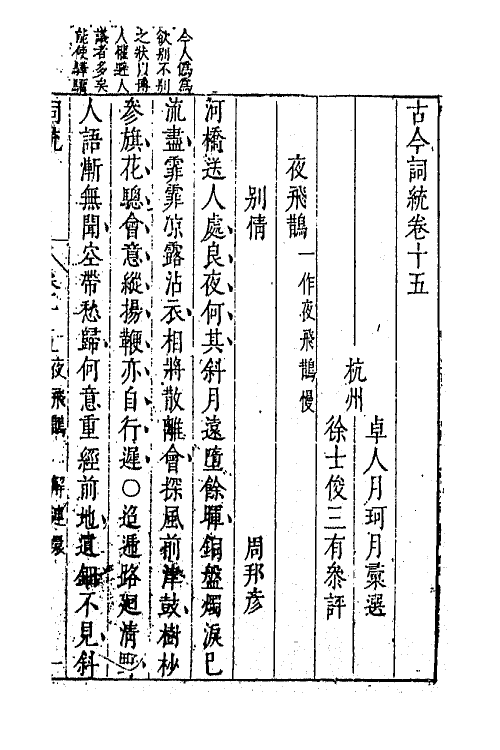 今人偽為
欲別不別
之狀以博
人催避人
議者多矣
能使驊騮
古今詞統卷十五
杭州
卓人月珂月彙選
徐士俊三有叅評
夜飛鵲一作夜飛鵲慢
別情
周邦彥
河橋送人處良夜何其斜月遠墮餘暉銅盤燭淚已
流盡霏霏凉露沾衣相將散離會探風前津鼓樹杪
參旗花驄會意縱揚鞭亦自行遲○迢遞路廻清野
人語漸無聞空帶愁歸何意重經前地遺鈿不見斜
詞統
卷十五
夜飛鵲
解連環
一